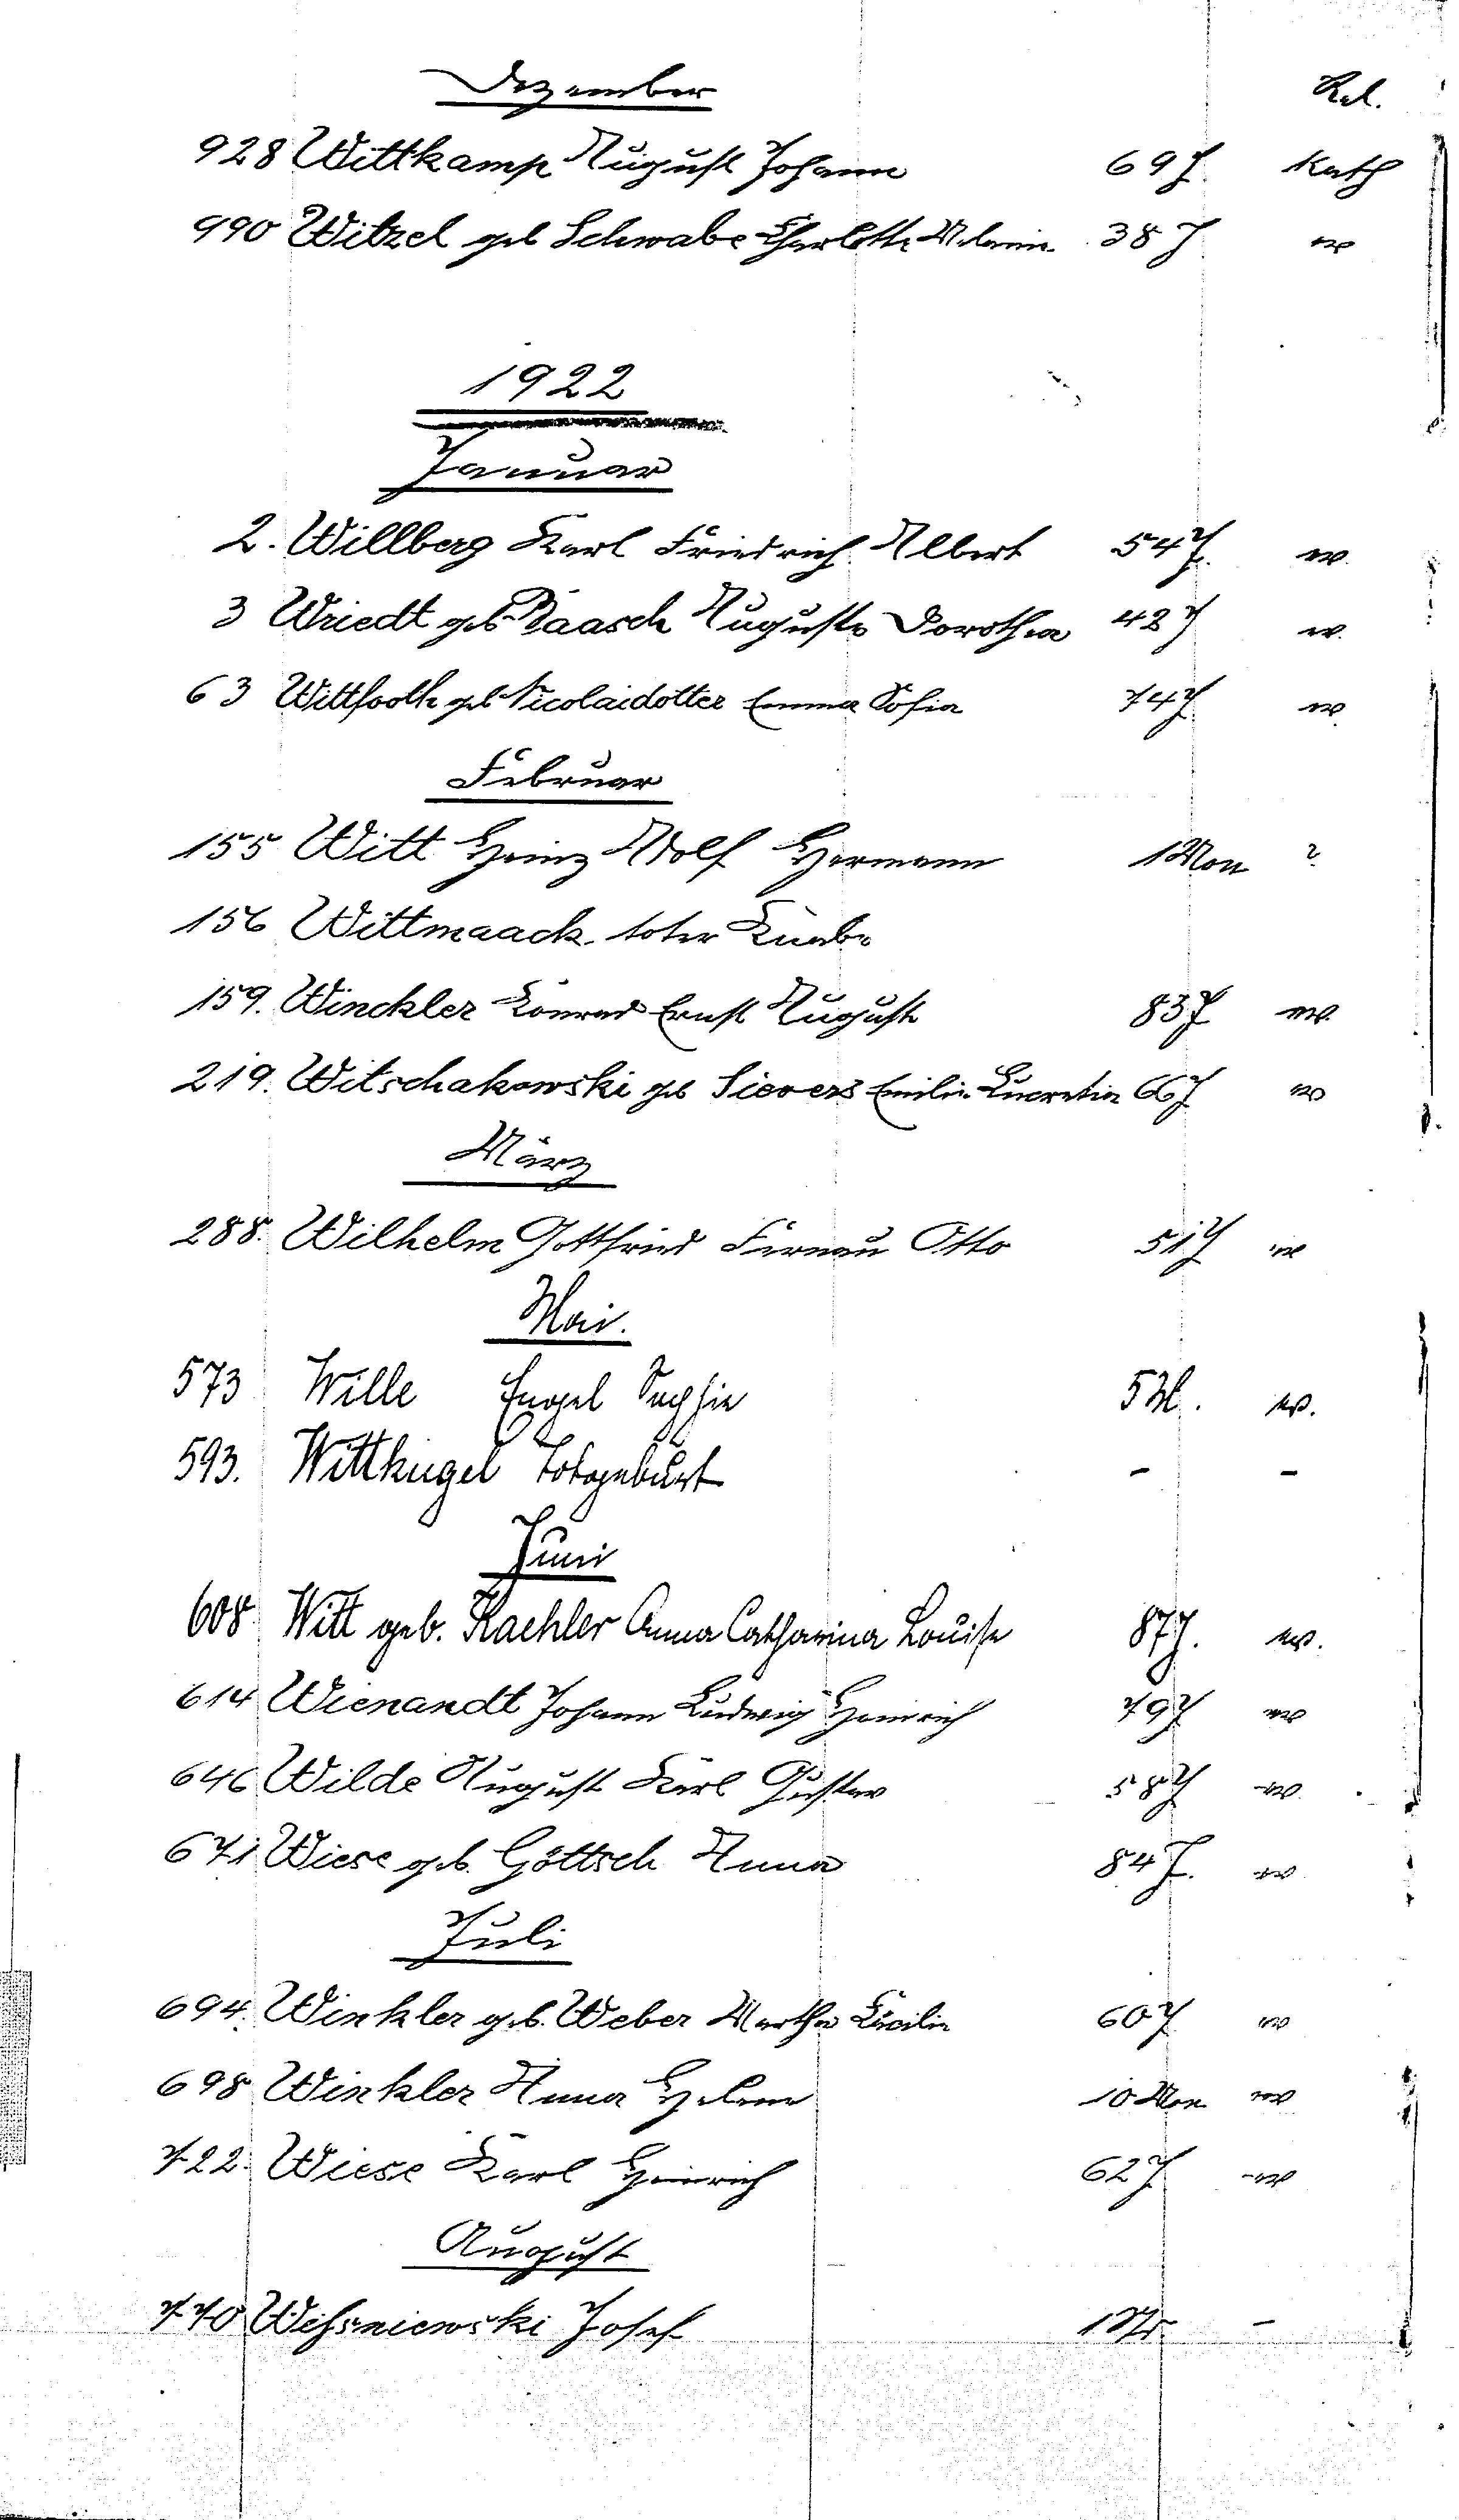 Dezember Rel.
928 Wittkamp August Johann 69 J. Kath
990 Witzel geb Schwabe Charlotte Melanie 38 J ev
1922
Januar
2. Willberg Karl Friedrich Albert 54 J. ev.
3 Wriedt geb Paasch Auguste Dorothea 42 J ev.
63 Wittfooth geb Nicolaidotter Emma Sofia 74 J. ev
Februar
155 Witt Heinz Adolf Hermann 1 Mon ?
156 Wittmaack toter Knabe
159. Winckler Konrad Ernst August 83 J ev.
219. Witschakowski geb Sievers Emilie Lucretia 66 J ev
März
288. Wilhelm Gottfried Otto 51 J ev
Mai.
573 Wille Engel Sophie 5 M. ev.
593. Wittkugel Totgeburt - -
Juni
608 Witt geb. Kaehler Anna Catharina Louise 87 J. ev.
614 Wienandt Johann Ludwig Heinrich 79 J ev
646 Wilde August Karl Gustav 58 J ev.
671 Wiese geb. Göttsch Anna 84 J. ev
Juli
694. Winkler geb. Weber Martha Cäcilie 60 J ev
698 Winkler Anna Helene 10 Mon ev
722. Wiese Karl Heinrich 62 J ev
August
770 Wissniewski Josef -